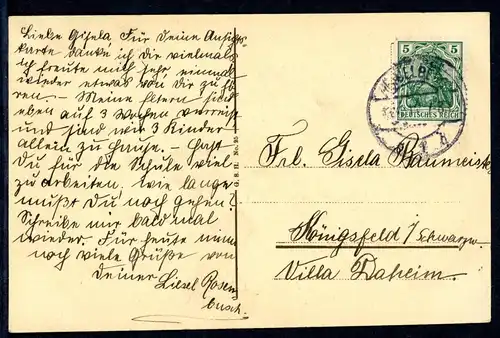 Liebe Gisela. Für Deine Ansichts-
karte danke ich Dir vielmals
ich freute mich sehr, einmal
wieder etwas von Dir zu hö-
ren. — Meine Eltern sind
eben auf 3 Wochen verreist
und sind wir 3 Kinder
allein zu Hause. — Hast
Du für die Schule viel
zu arbeiten. Wie lange
mußt Du noch gehen?
Schreibe mir bald mal
wieder. Für heute nimm
noch viele Grüße von
Deiner Liesel Rosen-
busch.
5 5
DEUTSCHES REICH
Frl. Gisela Baumeister
Königsfeld i/Schwarzw.
Villa Daheim.